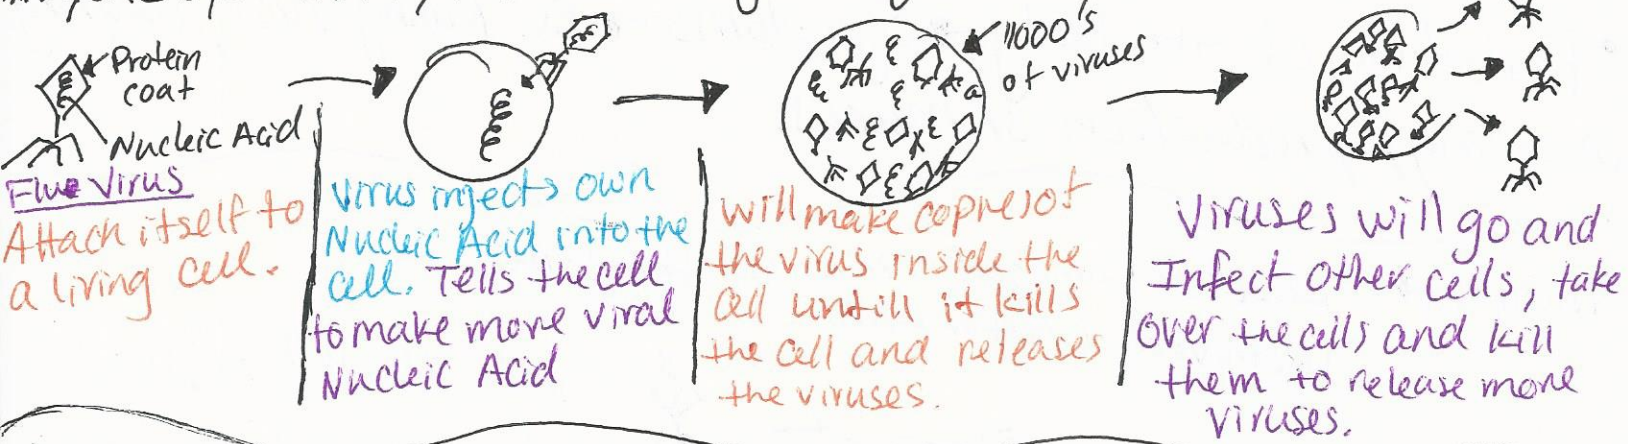 Protein
coat
Nucleic Acid
Flue Virus
Attach itself to
a living cell.
Virus injects own
Nucleic Acid into the
cell. Tells the cell
to make more viral
Nucleic Acid
1000's
of viruses
will make copies of
the virus inside the
cell untill it kills
the cell and releases
the viruses.
Viruses will go and
Infect other cells, take
over the cells and kill
them to release more
Viruses.